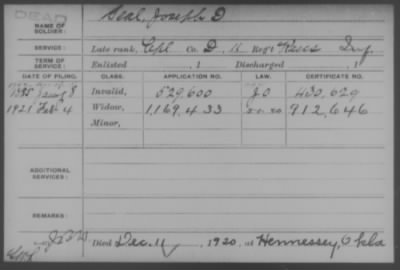 DEAD
NAME OF SOLDIER: Seal, Joseph D
SERVICE: Late rank, Cpl Co. D, 11 Reg't Kans Inf.
TERM OF SERVICE: Enlisted , 1 Discharged , 1
DATE OF FILING. CLASS. APPLICATION NO. LAW. CERTIFICATE NO.
8 Invalid, 529,600 430,629
1921 Feb 4 Widow, 1,169,433 912,646
Minor,
ADDITIONAL SERVICES:
REMARKS:
Died Dec. 11, 1920, at Hennessey, Okla